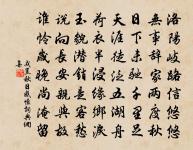 洛陽岐路信悠悠
無事辭家兩度秋
日下未馳千里足
天涯徒泛五湖舟
荷衣半浸緣鄉淚
玉貌潛銷是客愁
說向長安親與故
誰憐歲晚尚淹留
戎昱秋日感懷